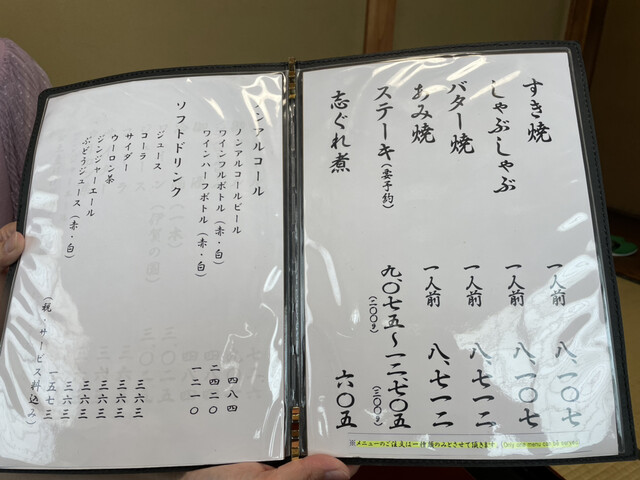 すき焼 一人前 八、一〇七
しゃぶしゃぶ 一人前 八、一〇七
バター焼 一人前 八、七一二
あみ焼 一人前 八、七一二
ステーキ(要予約) 九、〇七五〜一二、七〇五
(二〇〇g) (二〇〇g)
志ぐれ煮 六〇五
※メニューのご注文は一種類のみとさせて頂きます。(Only one menu can be
ノンアルコール
ノンアルコールビール 四八四
ワインフルボトル(赤・白) 二四二〇
ワインハーフボトル(赤・白) 一二一〇
ソフトドリンク
ジュース 三六三
コーラ 三六三
サイダー 三六三
ウーロン茶 三六三
ジンジャーエール 三六三
ぶどうジュース(赤・白) 一五七三
(税・サービス料込み)